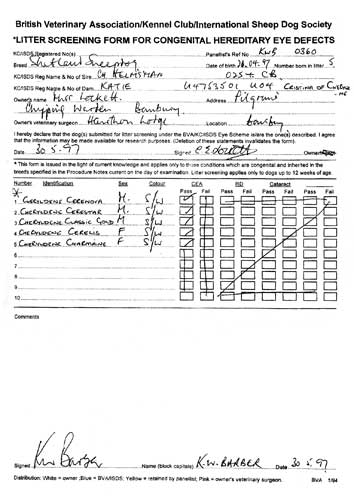 British Veterinary Association/Kennel Club/International Sheep Dog Society
*LITTER SCREENING FORM FOR CONGENITAL HEREDITARY EYE DEFECTS
KC/ISDS Registered No(s) Panellist's Ref No KWB 0360
Breed Shetland Sheepdog Date of birth 04.97 Number born in litter 5
KC/ISDS Reg Name & No of Sire CH HELMSMAN CB
KC/ISDS Reg Name & No of Dam KATIE
Owner's name Lockett Address Pilgrims
Chipping Warden Banbury
Owner's veterinary surgeon Hawthorn Lodge Location Banbury
I hereby declare that the dog(s) submitted for litter screening under the BVA/KC/ISDS Eye Scheme is/are the one(s) described. I agree
that the information may be made available for research purposes. (Deletion of these statements invalidates the form).
Date 30 5 97 Signed Owner
* This form is issued in the light of current knowledge and applies only to those conditions which are congenital and inherited in the
breeds specified in the Procedure Notes current on the day of examination. Litter screening applies only to dogs up to 12 weeks of age.
Number Identification Sex Colour CEA RD Cataract
Pass Fail Pass Fail Pass Fail Pass Fail
1 M. S/W
2 CHERYDENE CERESTAR M. S/W
3 CHERYDENE CLASSIC GOLD M S/W
4 CHERYDENE CERELIS F S/W
5 CHERYDENE CHARMAINE F S/W
6
7
8
9
10
Comments
Signed Name (block capitals) K.W. BARBER Date 30 5 97
Distribution: White = owner; Blue = BVA/ISDS; Yellow = retained by panellist; Pink = owner's veterinary surgeon. BVA 1/94